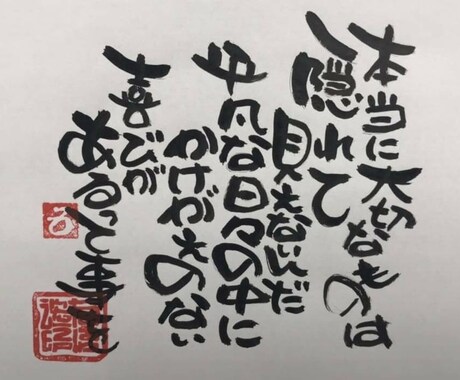 本当に大切なものは
隠れて
見えないんだ
平凡な日々の中に
かけがえのない
喜びが
あるって事を